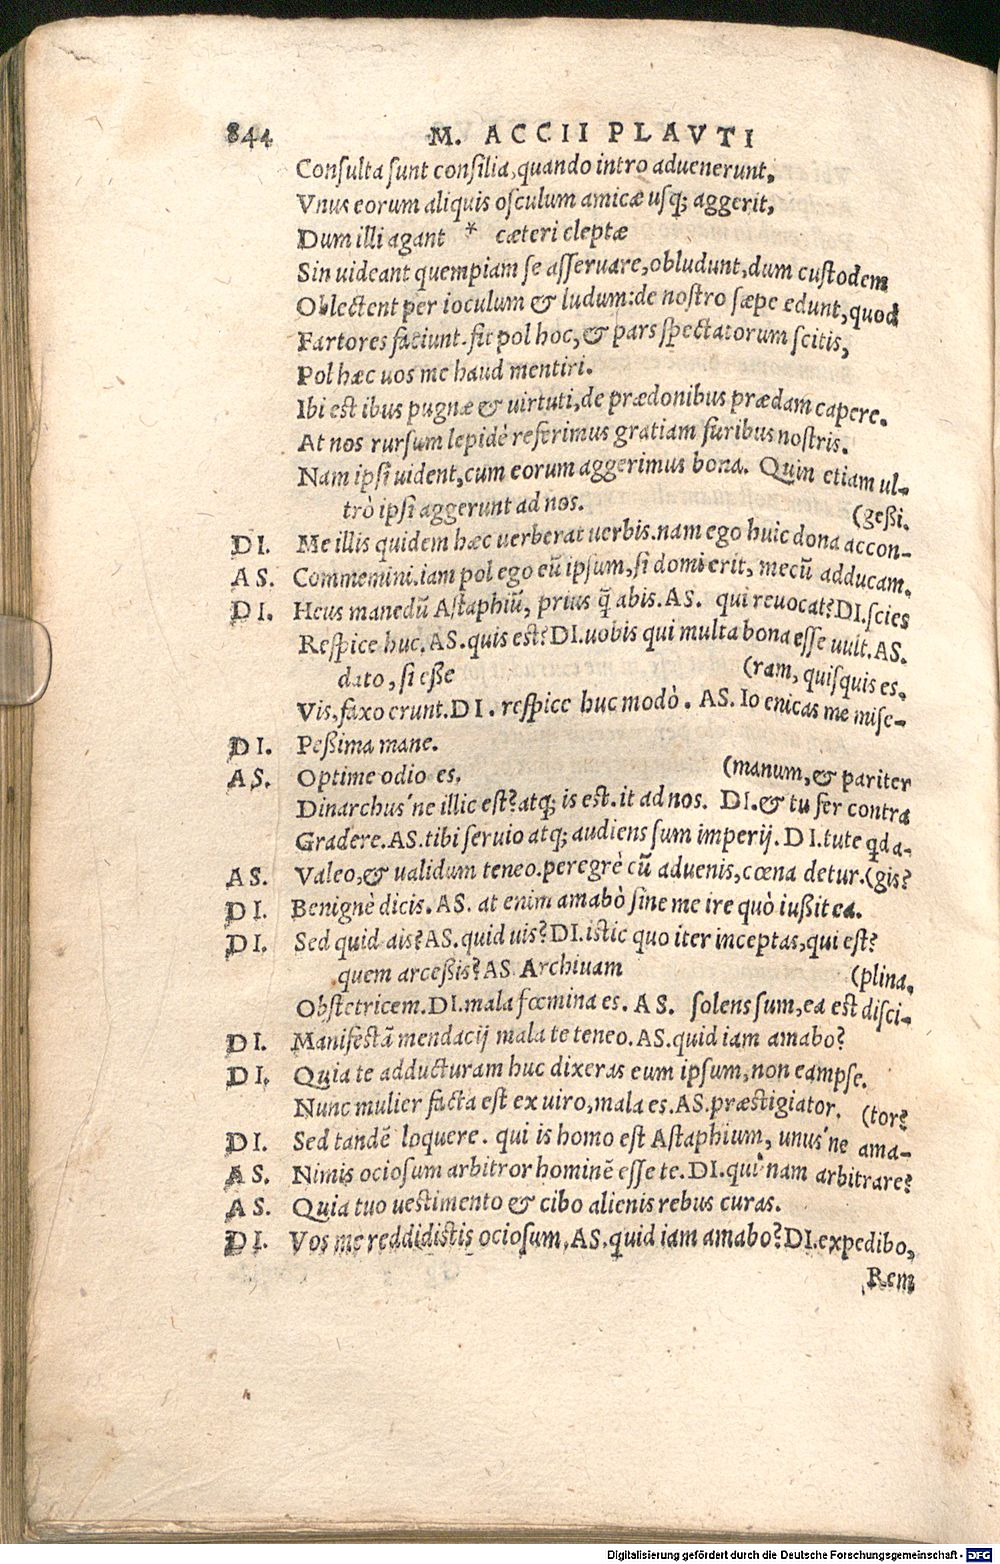 844 M. ACCII PLAVTI
Consulta sunt consilia, quando intro aduenerunt,
Vnus eorum aliquis osculum amicæ usq; aggerit,
Dum illi agant * cæteri cleptæ
Sin uideant quempiam se asseruare, obludunt, dum custodem
Oblectent per ioculum & ludum: de nostro sæpe edunt, quod
Fartores faciunt. fit pol hoc, & pars spectatorum scitis,
Pol hæc uos me haud mentiri.
Ibi est ibus pugnæ & uirtuti, de prædonibus prædam capere.
At nos rursum lepidè referimus gratiam furibus nostris.
Nam ipsi uident, cum eorum aggerimus bona. Quin etiam ul-
trò ipsi aggerunt ad nos. (geßi.
DI. Me illis quidem hæc uerberat uerbis. nam ego huic dona accon-
AS. Commemini. iam pol ego eũ ipsum, si domi erit, mecũ adducam.
DI. Heus manedũ Astaphiũ, prius q̃ abis. AS. qui reuocat? DI. scies
Respice huc. AS. quis est? DI. uobis qui multa bona esse uult. AS.
dato, si eße (ram, quisquis es.
Vis, faxo erunt. DI. respice huc modò. AS. Io enicas me mise-
DI. Peßima mane.
AS. Optime odio es. (manum, & pariter
Dinarchus'ne illic est? atq; is est. it ad nos. DI. & tu fer contra
Gradere. AS. tibi seruio atq; audiens sum imperij. DI. tute qd a-
AS. Valeo, & ualidum teneo. peregrè cũ aduenis, cœna detur. (gis?
DI. Benignè dicis. AS. at enim amabò sine me ire quò iußit ea.
DI. Sed quid ais? AS. quid uis? DI. istic quo iter inceptas, qui est?
quem arceßis? AS Archiuam (plina.
Obstetricem. DI. mala fœmina es. AS. solens sum, ea est disci-
DI. Manifestã mendacij mala te teneo. AS. quid iam amabo?
DI. Quia te adducturam huc dixeras eum ipsum, non eampse.
Nunc mulier facta est ex uiro, mala es. AS. præstigiator. (tor?
DI. Sed tandẽ loquere. qui is homo est Astaphium, unus'ne ama-
AS. Nimis ociosum arbitror hominẽ esse te. DI. qui nam arbitrare?
AS. Quia tuo uestimento & cibo alienis rebus curas.
DI. Vos me reddidistis ociosum, AS. quid iam amabo? DI. expedibo,
Rem
Digitalisierung gefördert durch die Deutsche Forschungsgemeinschaft - DFG